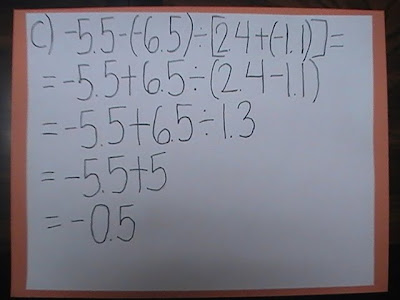 c) -5.5-(-6.5)÷[2.4+(-1.1)]=
= -5.5+6.5÷(2.4-1.1)
= -5.5+6.5÷1.3
= -5.5+5
= -0.5